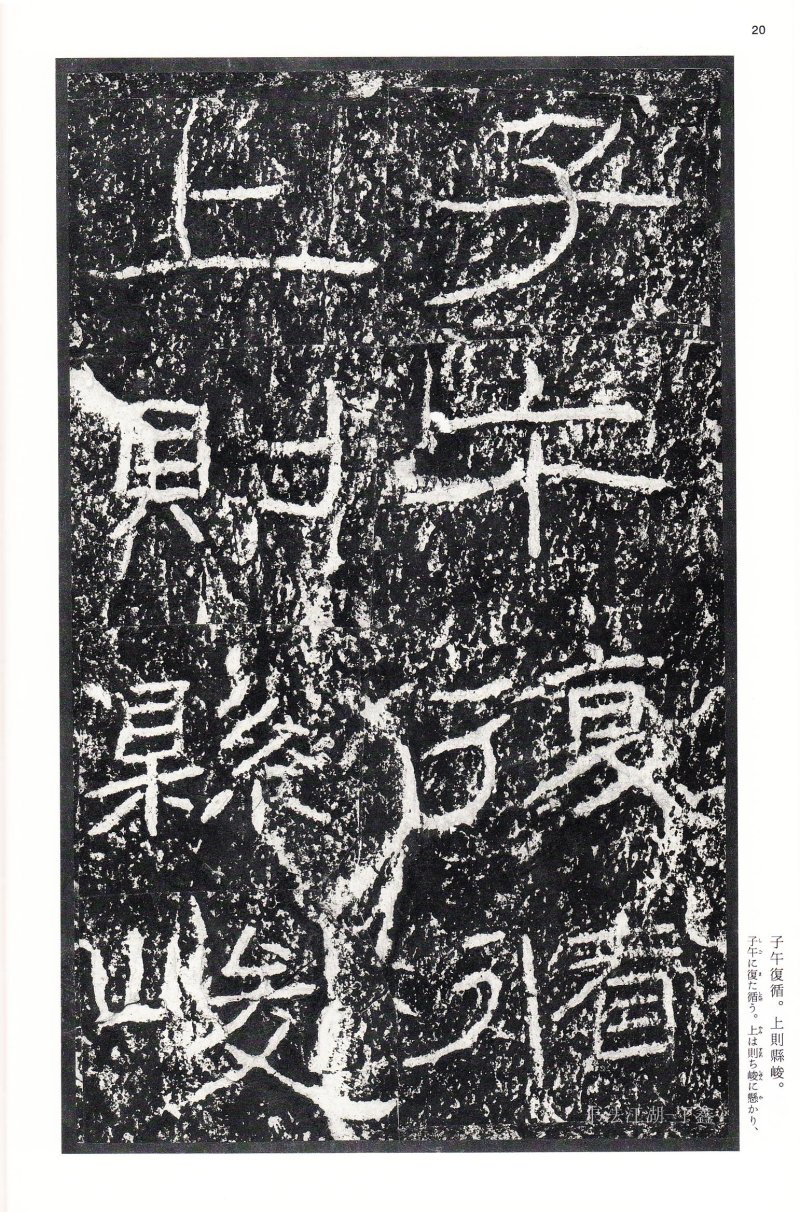 20
子午復循
上則縣峻
子午復循。上則縣峻。
子午に復た循う。上は則ち峻に懸かり、